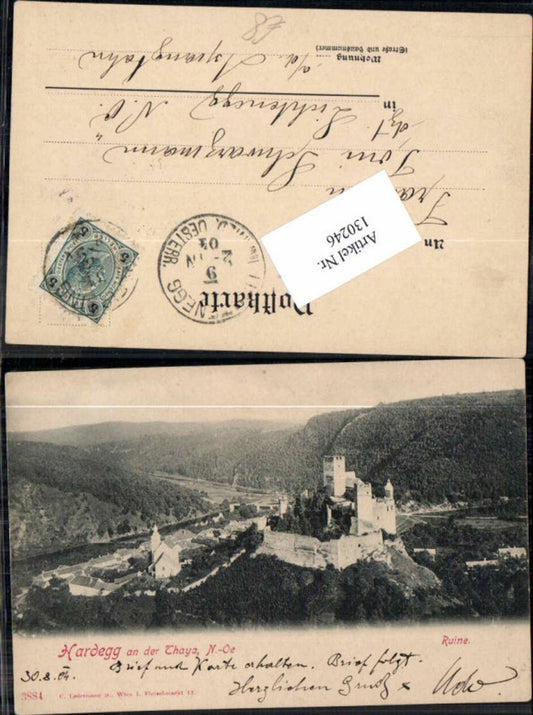 28
Postkarte
An
Fräulein
Toni Schwarzmann
dzt. Lichtenegg N.Ö.
in
a/d. Aspangbahn
Wohnung
(Straße und Hausnummer)
Artikel Nr.
130246
5
NEGG
9
04
OESTERR.
Hardegg an der Thaya, N.-Oe
Ruine.
30.8.04. Brief und Karte erhalten. Brief folgt.
Herzlichen Gruß
3884
C. Ledermann jr., Wien I. Fleischmarkt 12.